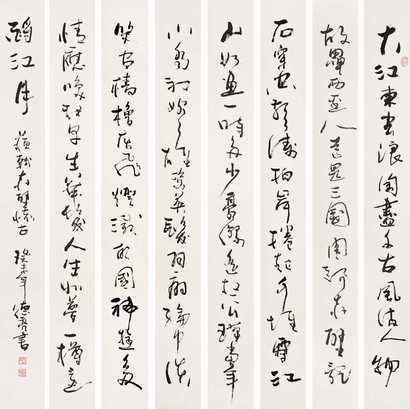 大江東去浪淘盡千古風流人物
故壘西邊人道是三國周郎赤壁亂
石穿空驚濤拍岸捲起千堆雪江
山如畫一時多少豪傑遙想公瑾當年
小喬初嫁了雄姿英發羽扇綸巾談
笑間檣櫓灰飛煙滅故國神遊多
情應笑我早生華髮人生如夢一樽還
酹江月 蘇軾赤壁懷古 年 書